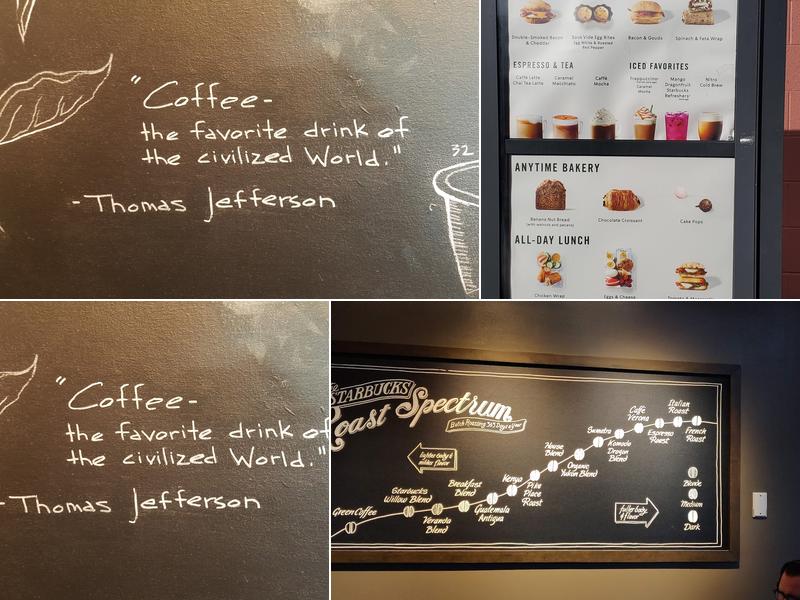 "Coffee-
the favorite drink of
the civilized World."
-Thomas Jefferson
32
Double-Smoked Bacon
& Cheddar
Sous Vide Egg Bites
Egg White & Roasted
Red Pepper
Bacon & Gouda
Spinach & Feta Wrap
ESPRESSO & TEA
ICED FAVORITES
Caffè Latte
Chai Tea Latte
Caramel
Macchiato
Caffè
Mocha
Frappuccino
Caramel
Mocha
Mango
Dragonfruit
Starbucks
Refreshers
Nitro
Cold Brew
ANYTIME BAKERY
Banana Nut Bread
(with walnuts and pecans)
Chocolate Croissant
Cake Pops
ALL-DAY LUNCH
Chicken Wrap
Eggs & Cheese
"Coffee-
the favorite drink of
the civilized World."
-Thomas Jefferson
STARBUCKS
Roast Spectrum
Batch Roasting 365 Days a Year
lighter body &
milder flavor
Green Coffee
Starbucks
Willow Blend
Veranda
Blend
Breakfast
Blend
Guatemala
Antigua
Kenya
Pike
Place
Roast
House
Blend
Organic
Yukon Blend
Sumatra
Komodo
Dragon
Blend
Caffè
Verona
Espresso
Roast
Italian
Roast
French
Roast
fuller body
& flavor
Blonde
Medium
Dark